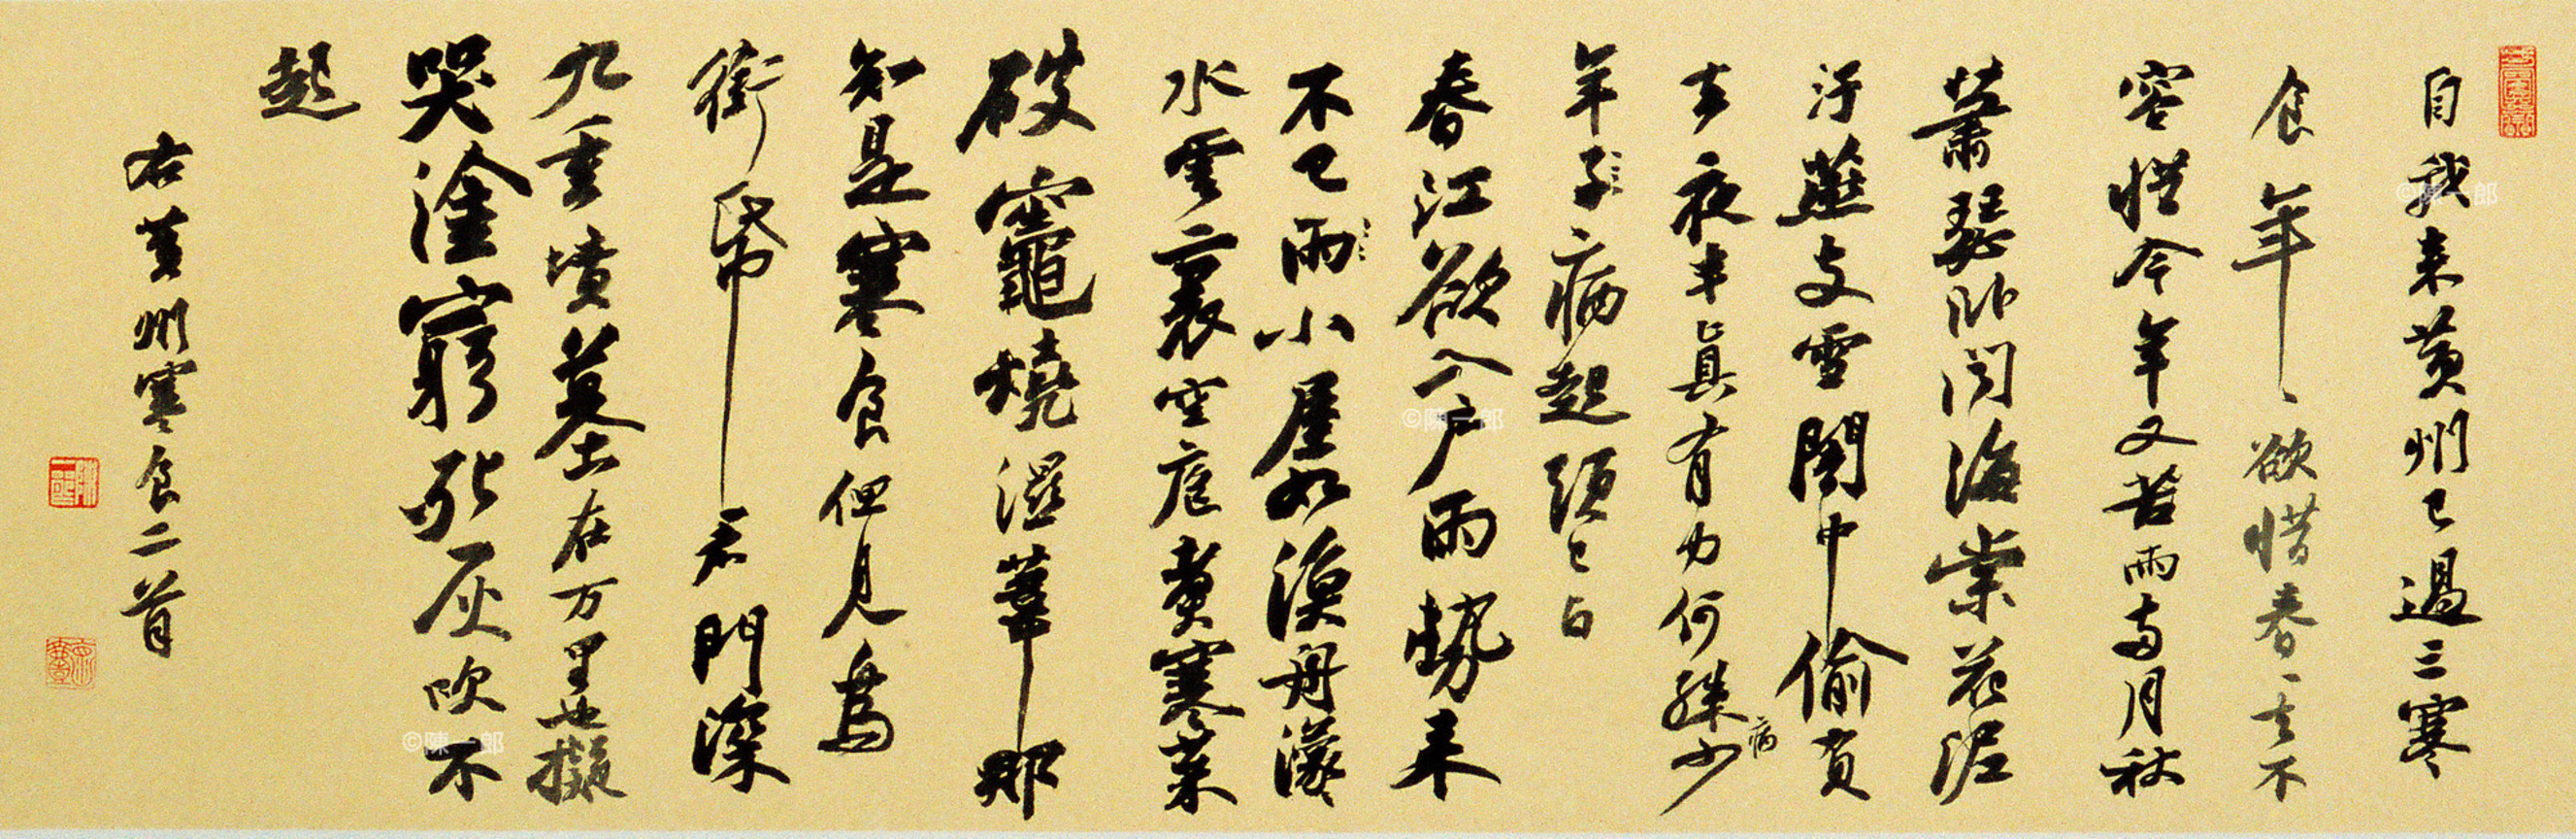 自我来黄州已過三寒
食年〻欲惜春〻去不
容惜今年又苦雨兩月秋
蕭瑟卧聞海棠花泥
汙燕支雪闇中偷負
去夜半真有力何殊少
病
年子病起頭已白
春江欲入户雨勢来
不已雨小屋如漁舟濛〻
水雲裏空庖煮寒菜
破竈燒濕葦那
知是寒食但見烏
銜帋君門深
九重墳墓在万里也擬
哭塗窮死灰吹不
起
右黄州寒食二首
©陳一郎
©陳一郎
©陳一郎